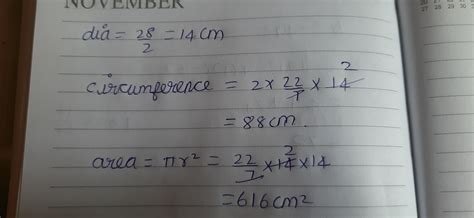 NOVEMBER
dia = 28/2 = 14 cm
circumference = 2 × 22/7 × 14 2
= 88 cm.
area = πr² = 22/7 × 14 2 × 14
= 616 cm²